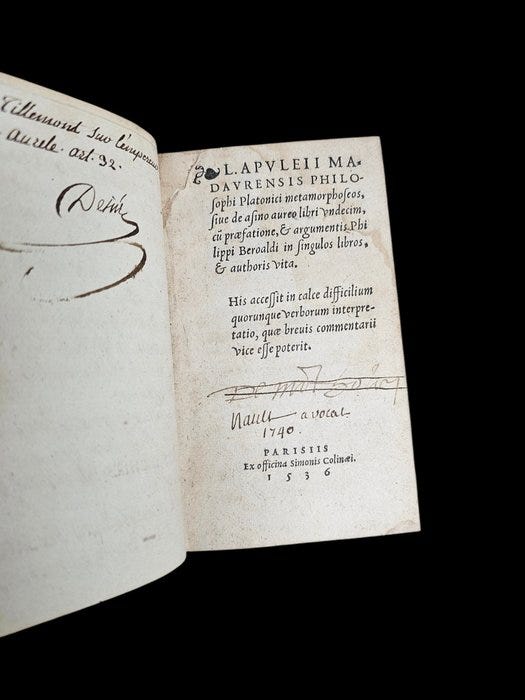 Tillemont Sur l'empereur
Aurele. art. 32.
❧ L. APVLEII MA-
DAVRENSIS PHILO-
ſophi Platonici metamorphoſeos,
ſiue de aſino aureo libri vndecim,
cũ præfatione, & argumentis Phi
lippi Beroaldi in ſingulos libros,
& authoris vita.
His acceſſit in calce difficilium
quorunque verborum interpre-
tatio, quæ breuis commentarii
vice eſſe poterit.
Nault avocat
1740.
PARISIIS
Ex officina Simonis Colinæi.
1536